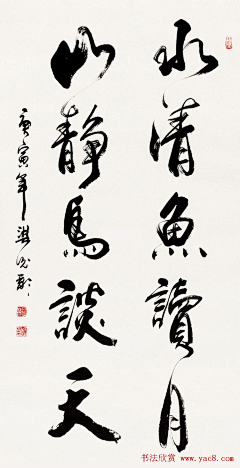 水清魚讀月
山靜鳥談天
庚寅年
书法欣赏
www.yac8.com